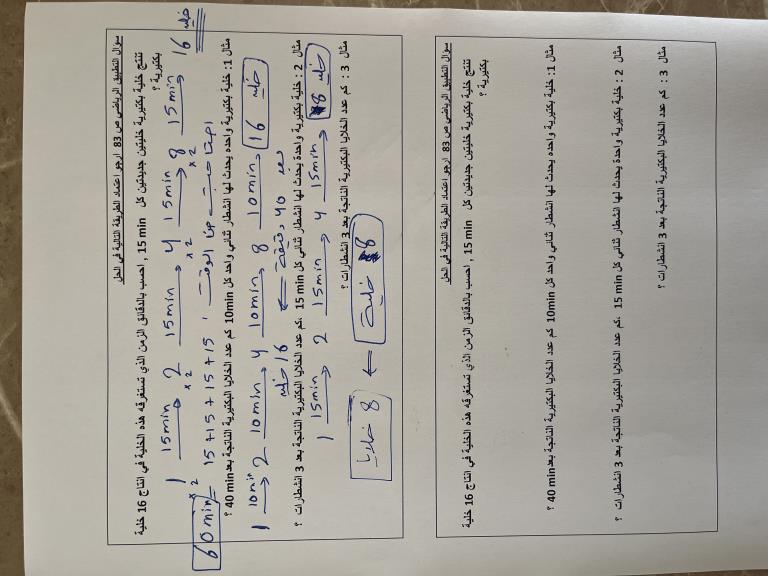 سؤال التطبيق الرياضي ص 83 ارجو اعتماد الطريقة التالية في الحل
تنتج خلية بكتيرية خليتين جديدتين كل 15 min , احسب بالدقائق الزمن الذي تستغرقه هذه الخلية في انتاج 16 خلية
بكتيرية ؟
1 15min → 2 15min → 4 15min → 8 15min → 16 خلية
×2 ×2 ×2 ×2
60min = 15+15+15+15 ، احتاجت هذا الوقت
مثال 1: خلية بكتيرية واحده يحدث لها انشطار ثنائي واحد كل 10min كم عدد الخلايا البكتيرية الناتجة بعد 40 min ؟
1 10min → 2 10min → 4 10min → 8 10min → 16 خلية
16 خلية ← بعد 40 دقيقة
مثال 2 : خلية بكتيرية واحدة يحدث لها انشطار ثنائي كل 15 min ،كم عدد الخلايا البكتيرية الناتجة بعد 3 انشطارات ؟
1 15min → 2 15min → 4 15min → 8 خلية
مثال 3 : كم عدد الخلايا البكتيرية الناتجة بعد 3 انشطارات ؟
8 خلايا ← 8 خلية
سؤال التطبيق الرياضي ص 83 ارجو اعتماد الطريقة التالية في الحل
تنتج خلية بكتيرية خليتين جديدتين كل 15 min , احسب بالدقائق الزمن الذي تستغرقه هذه الخلية في انتاج 16 خلية
بكتيرية ؟
مثال 1: خلية بكتيرية واحده يحدث لها انشطار ثنائي واحد كل 10min كم عدد الخلايا البكتيرية الناتجة بعد 40 min ؟
مثال 2 : خلية بكتيرية واحدة يحدث لها انشطار ثنائي كل 15 min ،كم عدد الخلايا البكتيرية الناتجة بعد 3 انشطارات ؟
مثال 3 : كم عدد الخلايا البكتيرية الناتجة بعد 3 انشطارات ؟